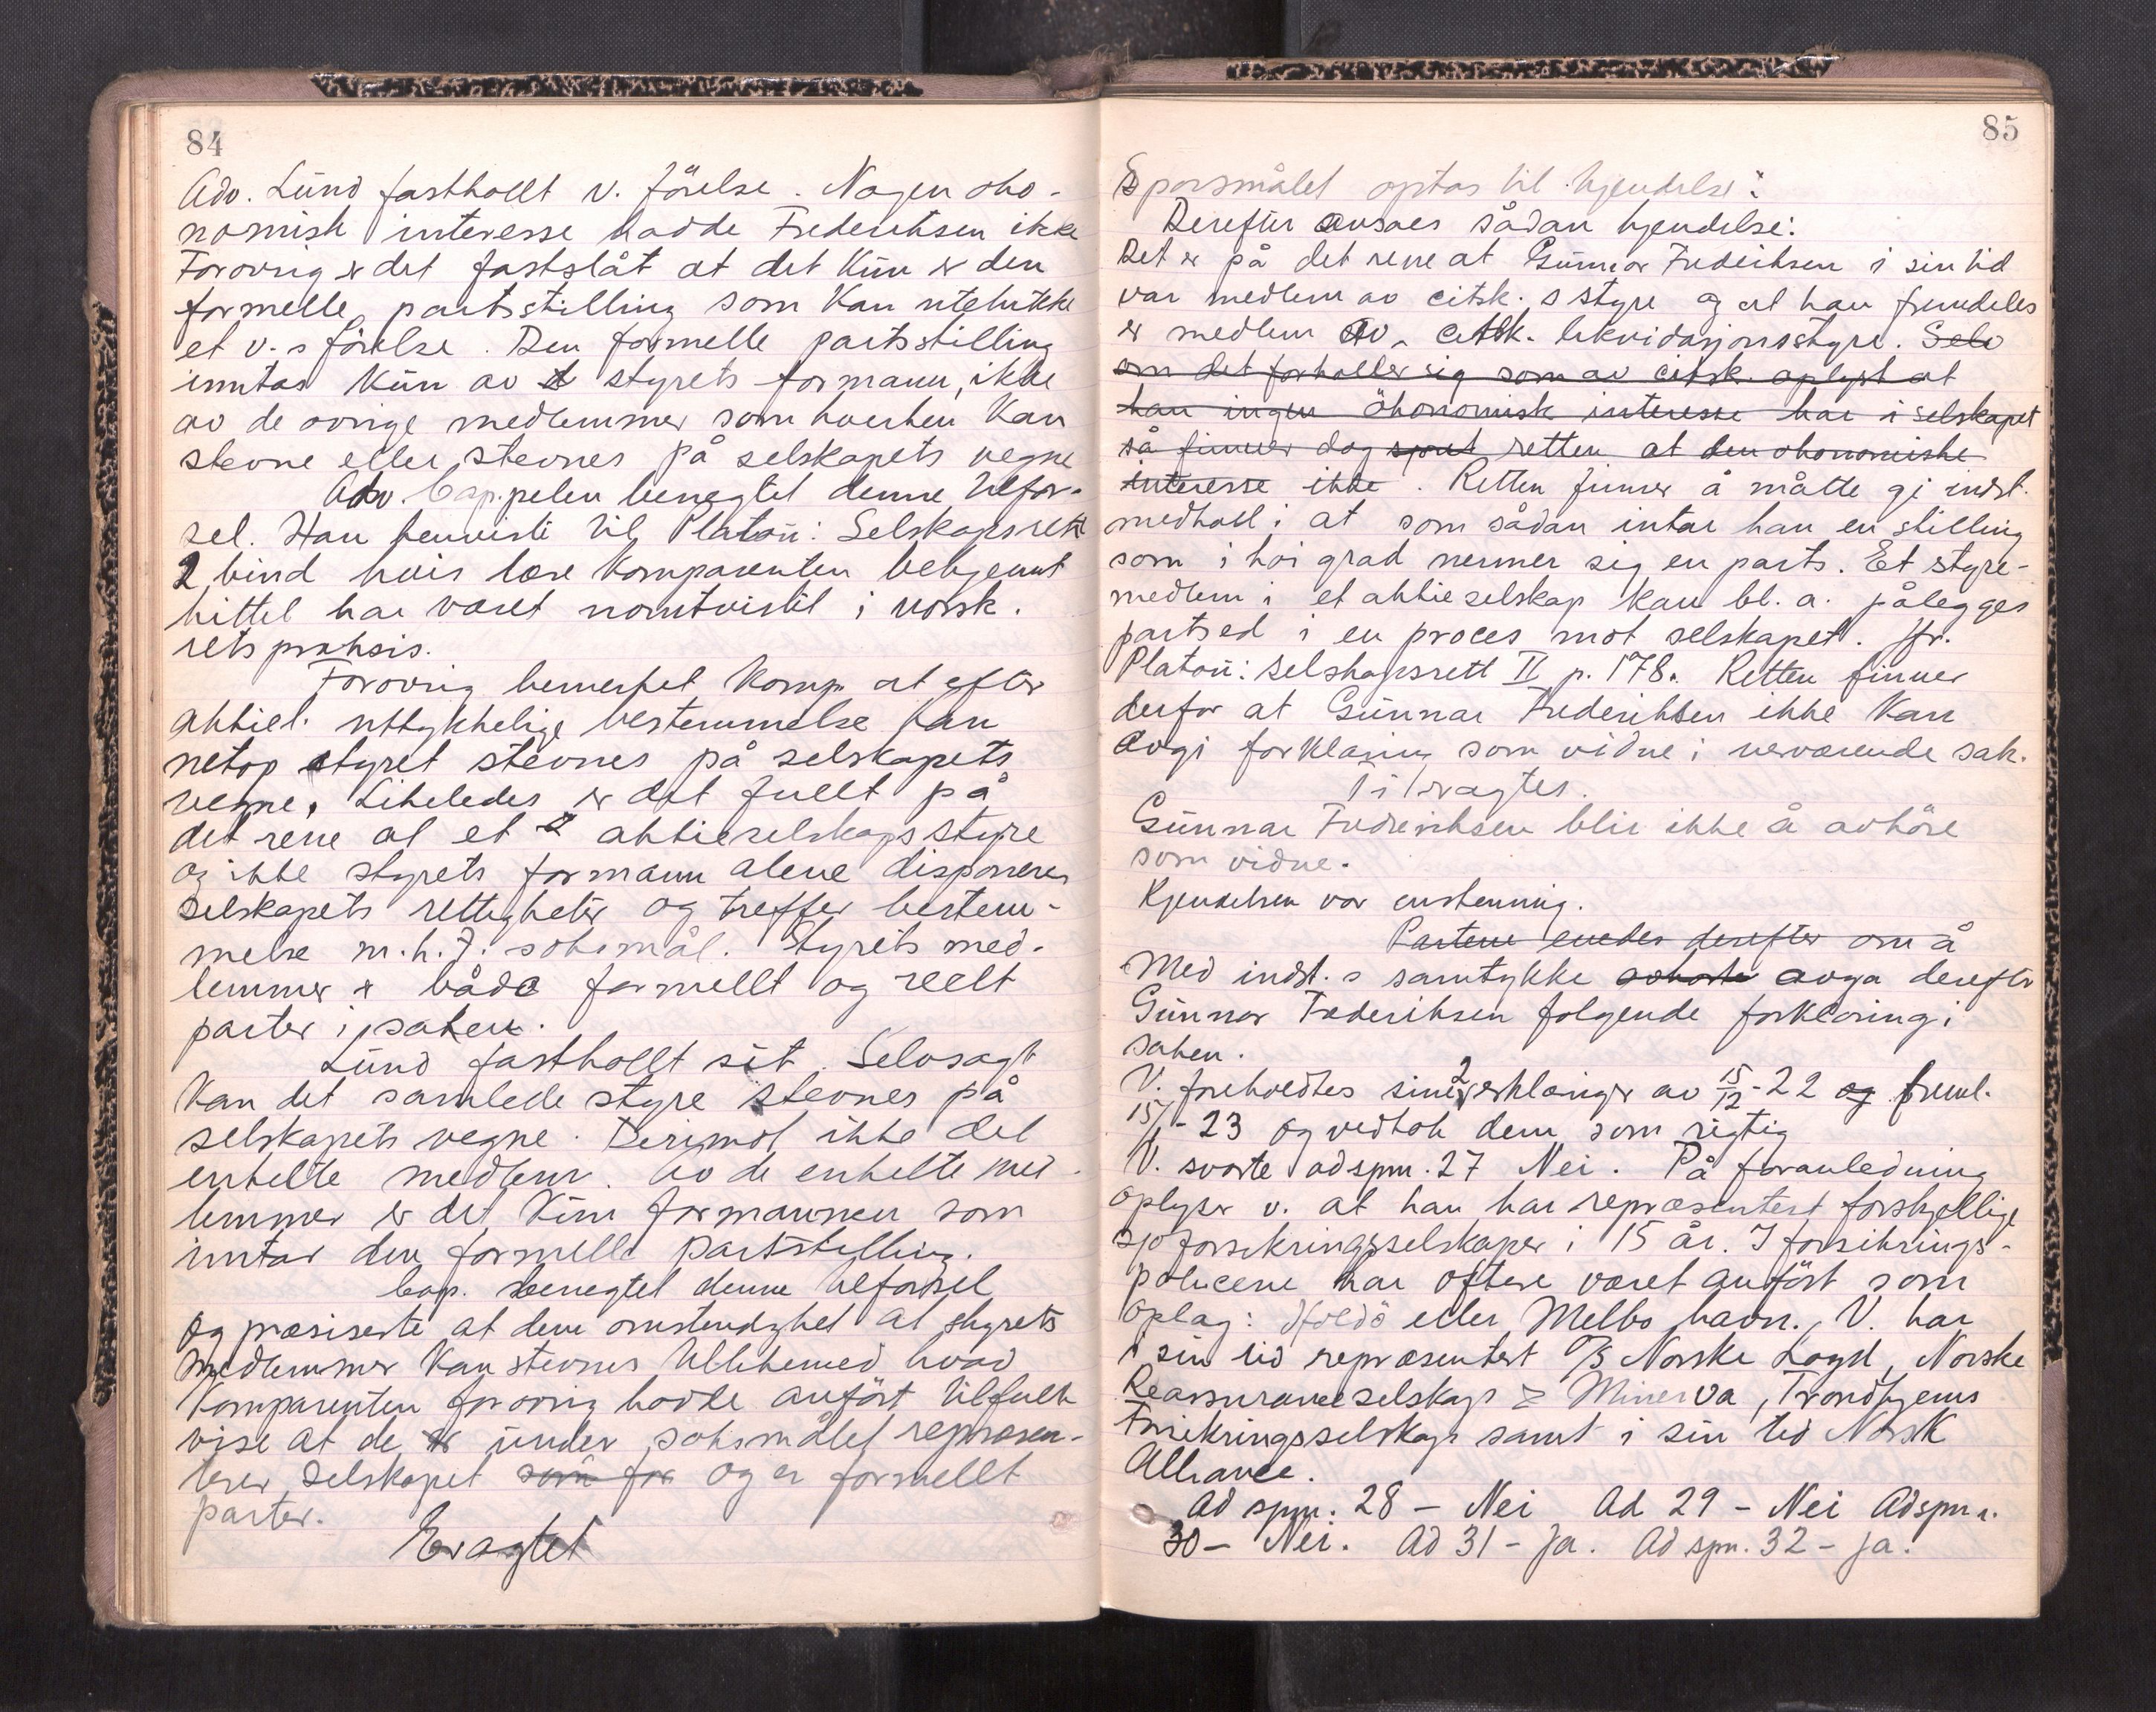 84
Adv. Lünd fastholt v. förelse. Nogen öko-
nomisk interesse hadde Frederiksen ikke
Forovrig er det fastslåt at det kün er den
formelle partsstilling som kan utelukke
et v.s förelse. Den formelle partsstilling
inntas kün av styrets formann, ikke
av de ovrige medlemmer som hverken kan
stevne eller stevnes på selskapets vegne
Adv. Cappelen benegtet denne utfor-
sel. Han henviste til Platou: Selskapsrett
2 bind hvis lære komparenten bekjent
hittil har været uomtvistet i norsk.
rets praksis.
Forovrig bemerket komp. at efter
aktiel. uttrykkelige bestemmelse kan
netop styret stevnes på selskapets
vegne. Likeledes er det fullt på
det rene at et aktieselskaps styre
og ikke styrets formann alene disponerer
selskapets rettigheter og treffer bestem-
melse m.h.t. söksmål. Styrets med-
lemmer er både formellt og reelt
parter i saken.
Lünd fastholt sit. Selvsagt
kan det samlede styre stevnes på
selskapets vegne. Derimot ikke det
enkelte medlem. Av de enkelte med-
lemmer er det kün formannen som
inntar den formelle partsstilling.
Cap. benegtet denne utforsel
og præsiserte at den omstendighet at styrets
medlemmer kan stevnes tillikemed hvad
komparenten forovrig hadde anfört tilfulle
viser at de ünder söksmålet represen-
terer selskapet som for og er formellt
parter.
Eragtet
85
Sporsmålet optas til kjendelse:
Derefter avsaes sådan kjendelse:
Det er på det rene at Günnar Frederiksen i sin tid
var medlem av citsk. s styre og at han fremdeles
er medlem av citsk. likvidasjonsstyre. Selv
om det forholder sig som av citsk. oplyst at
han ingen ökonomisk interesse har i selskapet
så finner dog retten at den okonomiske
interesse ikke. Retten finner å måtte gi indst.
medhold i at som sådan intar han en stilling
som i hoi grad nermer sig en parts. Et styre-
medlem i et aktieselskap kan bl. a. pålegges
partsed i en proces mot selskapet. Jfr.
Platou: Selskapsrett II p. 178. Retten finner
derfor at Günnar Frederiksen ikke kan
avgi forklaring som vidne i nerværende sak.
Ti eragtes.
Günnar Frederiksen blir ikke å avhöre
som vidne.
Kjendelsen var enstemmig.
Partene enedes derefter om å
Med indst. s samtykke avga derefter
Günnar Frederiksen folgende forklaring i
saken.
V. foreholdtes sine 2 erklæringer av 15/12-22 og freml.
15/1-23 og vedtok dem som rigtig
V. svarte ad spm. 27 Nei. På foranledning
oplyser v. at han har repræsentert forskjellige
sjoforsikringsselskaper i 15 år. I forsikrings-
policene har oftere været anfört som
oplag: Holdö eller Melbo havn. V. har
i sin tid repræsentert A/S Norske Loyd, Norske
Reassuranceselskap Minerva, Trondhjems
Forsikringsselskap samt i sin tid Norsk
Alliance.
Ad spm. 28 - Nei Ad 29 - Nei Ad spm.
30 - Nei. Ad 31 - Ja. Ad spm. 32 - Ja.